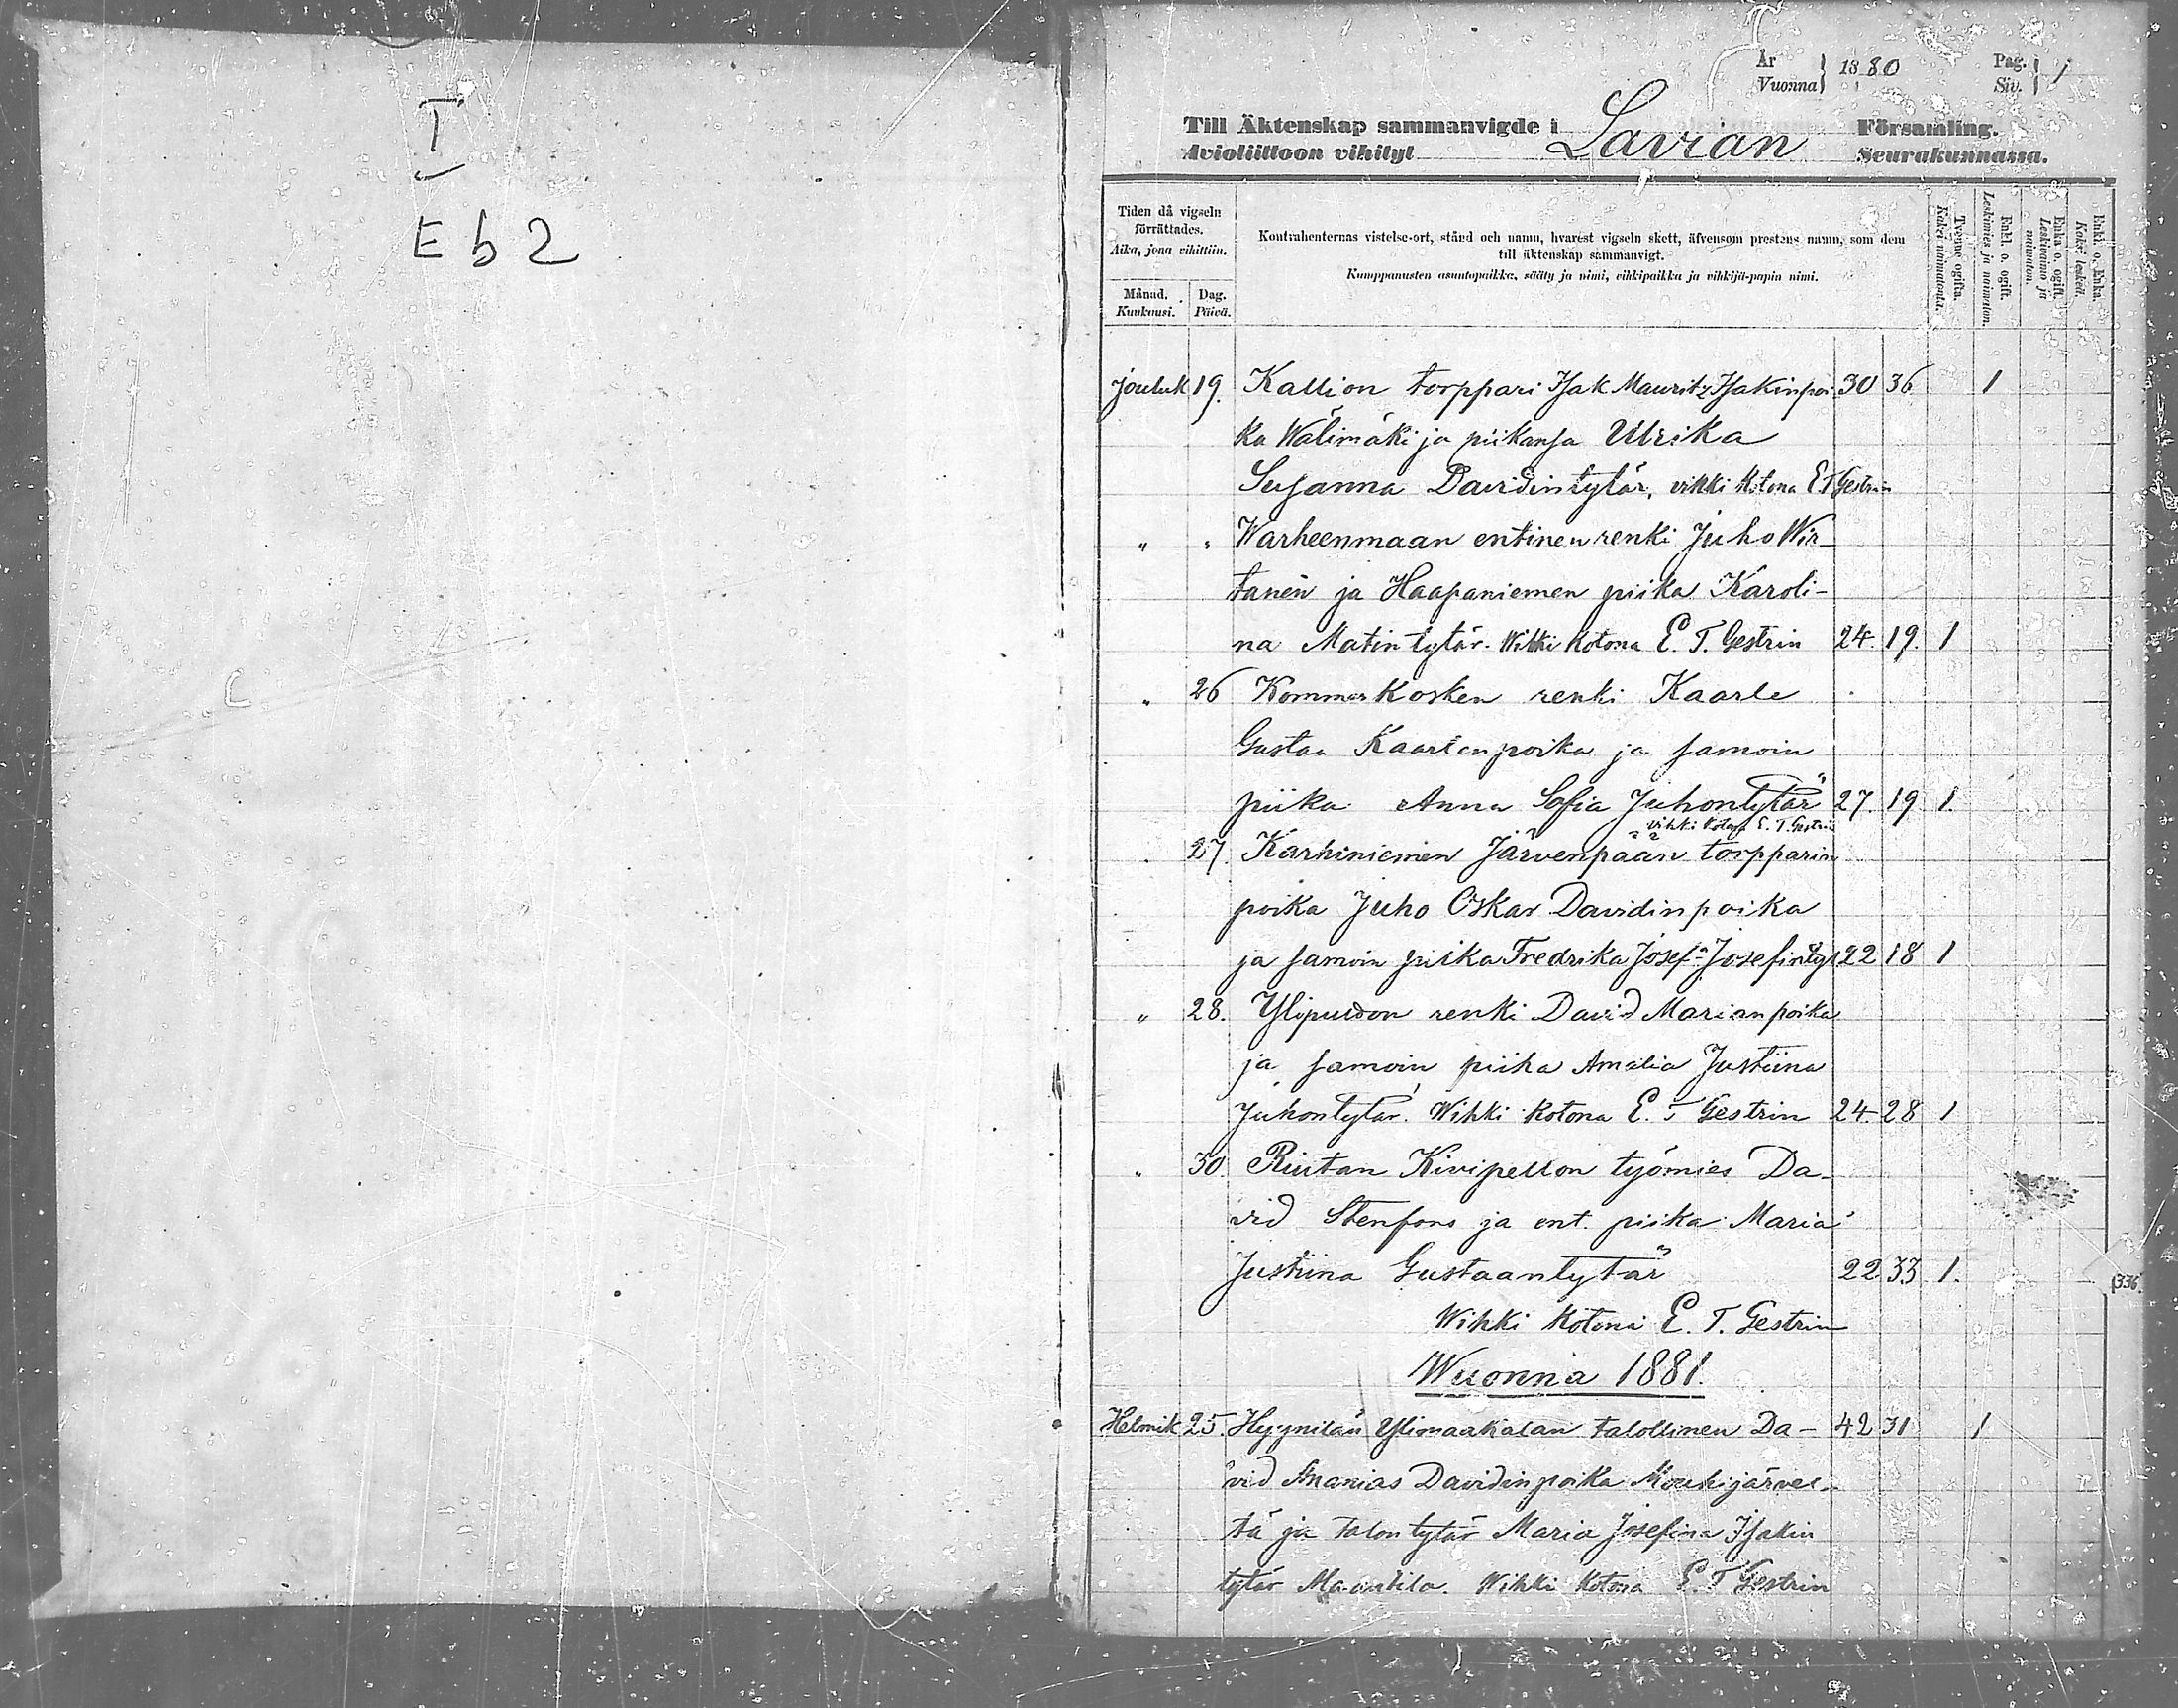 I
E b 2
År
Vuonna
1880
Pag.
Siv.
1
Till Äktenskap sammanvigde i
Avioliittoon vihityt
Lavian
Församling.
Seurakunnassa.
Tiden då vigseln
förrättades.
Aika, jona vihittiin.
Månad.
Kuukausi.
Dag.
Päivä.
Kontrahenternas vistelse-ort, stånd och namn, hvarest vigseln skett, äfvensom prestens namn, som dem
till äktenskap sammanvigt.
Kumppanusten asuntopaikka, sääty ja nimi, vihkipaikka ja vihkijä-papin nimi.
Tvenne ogifta.
Kaksi naimatonta.
Enkl. o. ogift.
Leskimies ja naimaton.
Enka o. ogift.
Leskivaimo ja
naimaton.
Enkl. o. Enka.
Kaksi leskeä.
Jouluk 19. Kallion torppari Isak Mauritz Isakinpoi 30 36 1
ka Wälimäki ja piikansa Ulrika
Susanna Davidintytär, vihki kotona E.T Gestrin
" " Warheenmaan entinen renki Juho Wir-
tanen ja Haapaniemen piika Karoli-
na Matintytär. Wihki kotona E. T. Gestrin 24. 19. 1
" 26 Kommerkosken renki Kaarle
Gustaa Kaarlenpoika ja samoin
piika Anna Sofia Juhontytär 27. 19 1.
vihki kotona E. T. Gestrin
" 27. Karhiniemen Järvenpään torpparin
poika Juho Oskar Davidinpoika
ja samoin piika Fredrika Josef- Josefintyt 22 18 1
" 28. Ylipuron renki David Marianpoika
ja samoin piika Amalia Justiina
Juhontytär. Wihki kotona E. T Gestrin 24 28 1
" 30. Riutan Kivipellon työmies Da-
vid Stenfors ja ent. piika Maria
Justiina Gustaantytär 22 33 1.
Wihki kotona E. T. Gestrin
Wuonna 1881.
Helmik 25. Hyynilän Ylimaakalan talollinen Da- 42 31 1
vid Ananias Davidinpoika Mouhijärvel-
tä ja talontytär Maria Josefina Isakin
tytär Maantila. Wihki kotona E. T Gestrin
336.